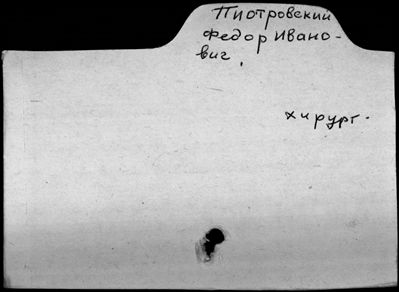 Пиотровский
Федор Ивано-
вич.
хирург.